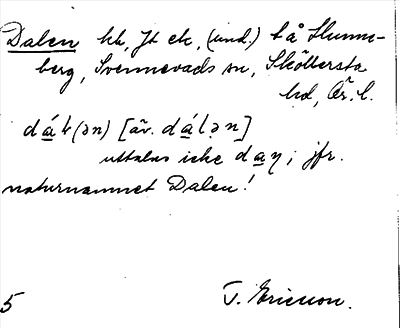 Dalen hk, Jt ek, (und.) t å Slumm-
berg, Svennevads sn, Sköllersta
hd, Ör. l.
dá̱k(ən) [äv. dá̱lən]
uttalas icke da̱ŋ; jfr.
naturnamnet Dalen!
5 T. Ericsson.